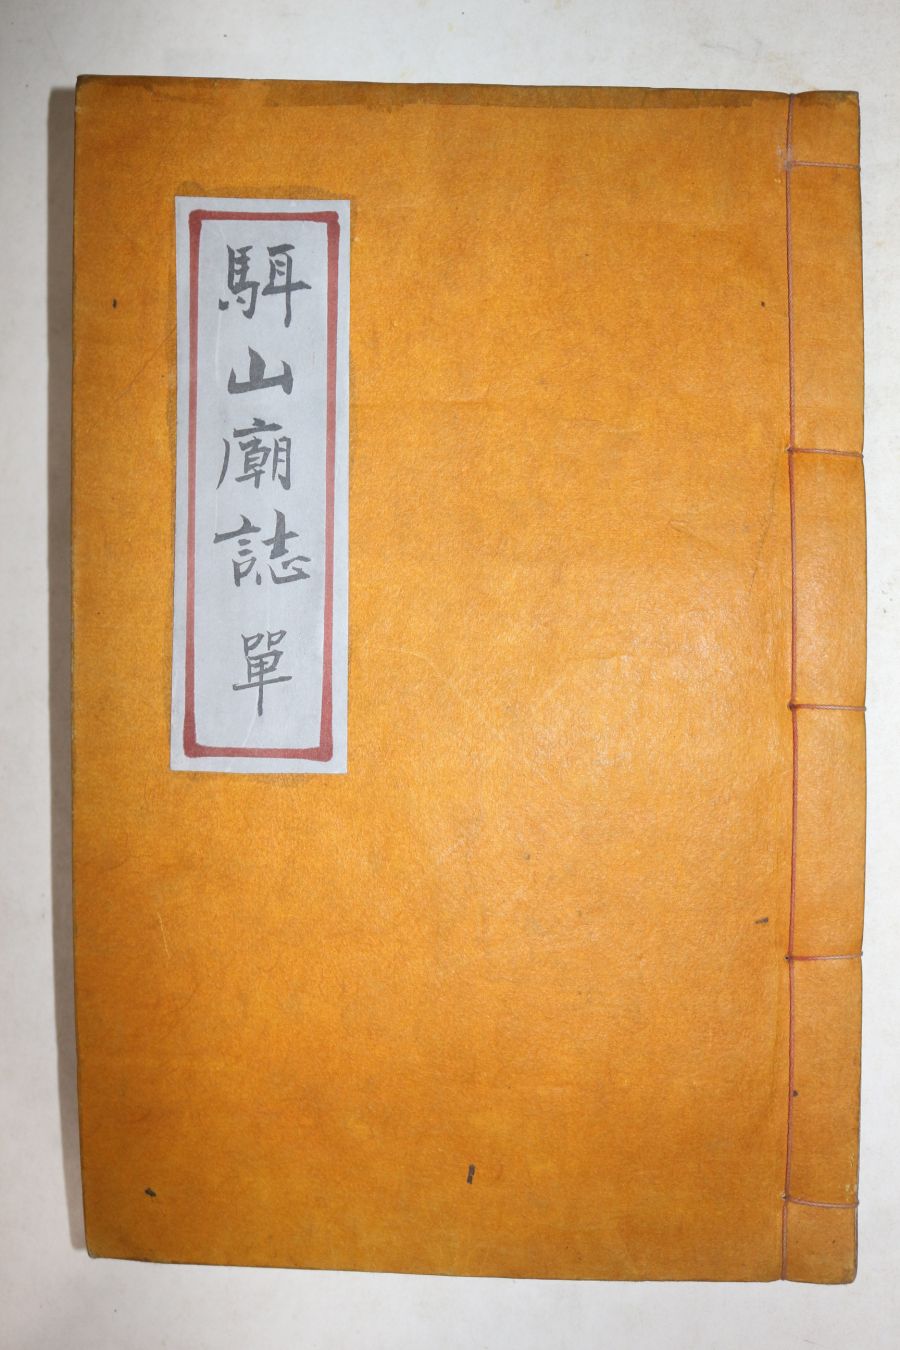 駬山廟誌 單